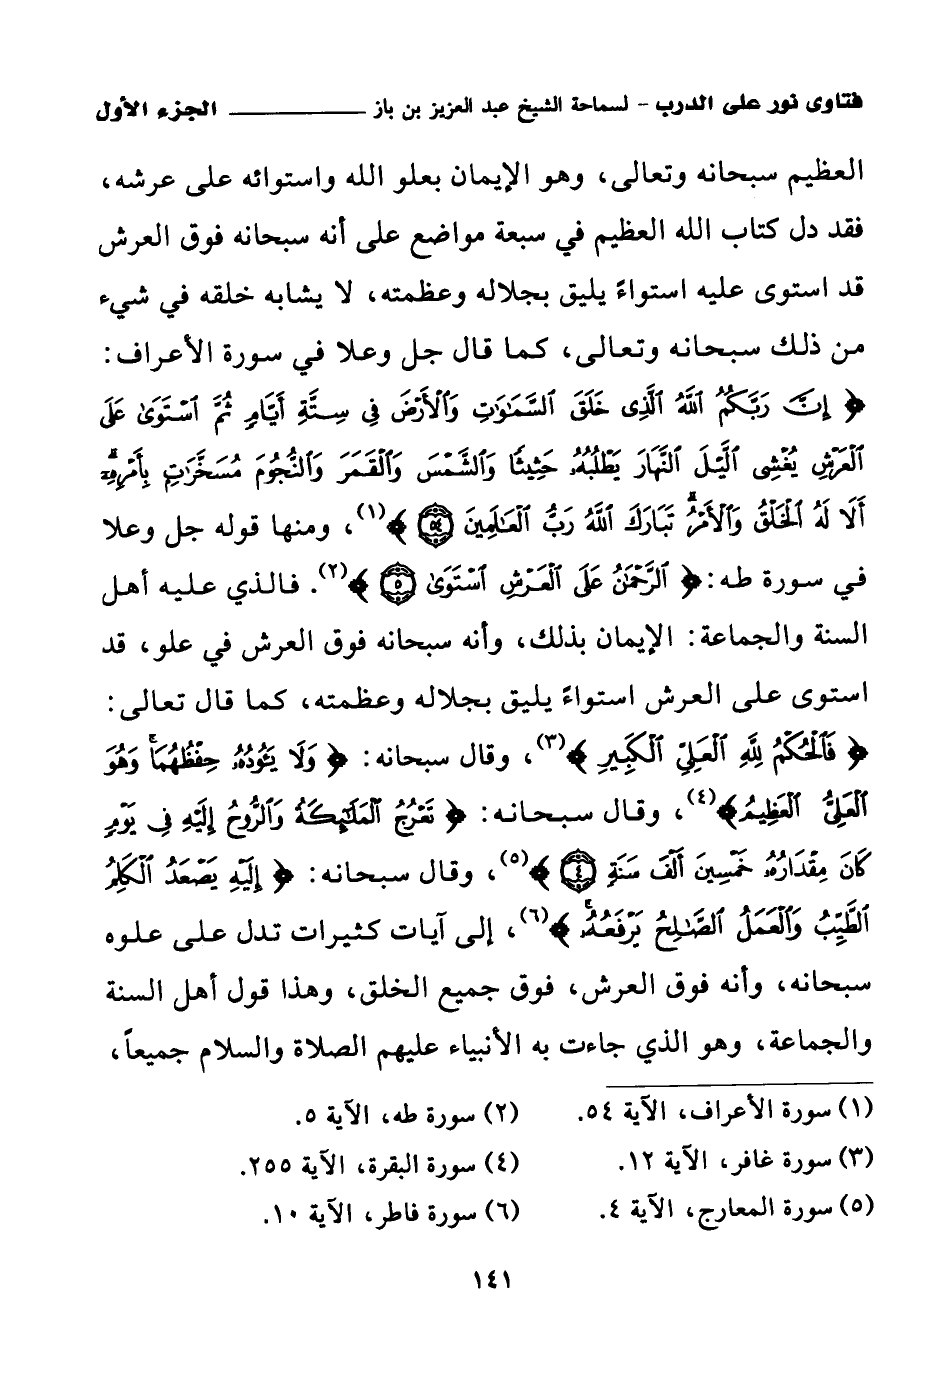 فتاوى نور على الدرب - لسماحة الشيخ عبد العزيز بن باز ــــــــــــ الجزء الأول
العظيم سبحانه وتعالى، وهو الإيمان بعلو الله واستوائه على عرشه،
فقد دل كتاب الله العظيم في سبعة مواضع على أنه سبحانه فوق العرش
قد استوى عليه استواءً يليق بجلاله وعظمته، لا يشابه خلقه في شيء
من ذلك سبحانه وتعالى، كما قال جل وعلا في سورة الأعراف:
﴿ إِنَّ رَبَّكُمُ ٱللَّهُ ٱلَّذِى خَلَقَ ٱلسَّمَٰوَٰتِ وَٱلْأَرْضَ فِى سِتَّةِ أَيَّامٍ ثُمَّ ٱسْتَوَىٰ عَلَى
ٱلْعَرْشِ يُغْشِى ٱلَّيْلَ ٱلنَّهَارَ يَطْلُبُهُۥ حَثِيثًا وَٱلشَّمْسَ وَٱلْقَمَرَ وَٱلنُّجُومَ مُسَخَّرَٰتٍۭ بِأَمْرِهِۦٓ ۗ
أَلَا لَهُ ٱلْخَلْقُ وَٱلْأَمْرُ ۗ تَبَارَكَ ٱللَّهُ رَبُّ ٱلْعَٰلَمِينَ ٥٤ ﴾(١)، ومنها قوله جل وعلا
في سورة طه: ﴿ ٱلرَّحْمَٰنُ عَلَى ٱلْعَرْشِ ٱسْتَوَىٰ ٥ ﴾(٢). فالذي عليه أهل
السنة والجماعة: الإيمان بذلك، وأنه سبحانه فوق العرش في علو، قد
استوى على العرش استواءً يليق بجلاله وعظمته، كما قال تعالى:
﴿ فَٱلْحُكْمُ لِلَّهِ ٱلْعَلِىِّ ٱلْكَبِيرِ ﴾(٣)، وقال سبحانه: ﴿ وَلَا يَـُٔودُهُۥ حِفْظُهُمَا ۚ وَهُوَ
ٱلْعَلِىُّ ٱلْعَظِيمُ ﴾(٤)، وقال سبحانه: ﴿ تَعْرُجُ ٱلْمَلَٰٓئِكَةُ وَٱلرُّوحُ إِلَيْهِ فِى يَوْمٍ
كَانَ مِقْدَارُهُۥ خَمْسِينَ أَلْفَ سَنَةٍ ٤ ﴾(٥)، وقال سبحانه: ﴿ إِلَيْهِ يَصْعَدُ ٱلْكَلِمُ
ٱلطَّيِّبُ وَٱلْعَمَلُ ٱلصَّٰلِحُ يَرْفَعُهُۥ ۚ ﴾(٦)، إلى آيات كثيرات تدل على علوه
سبحانه، وأنه فوق العرش، فوق جميع الخلق، وهذا قول أهل السنة
والجماعة، وهو الذي جاءت به الأنبياء عليهم الصلاة والسلام جميعاً،
(١) سورة الأعراف، الآية ٥٤. (٢) سورة طه، الآية ٥.
(٣) سورة غافر، الآية ١٢. (٤) سورة البقرة، الآية ٢٥٥.
(٥) سورة المعارج، الآية ٤. (٦) سورة فاطر، الآية ١٠.
١٤١